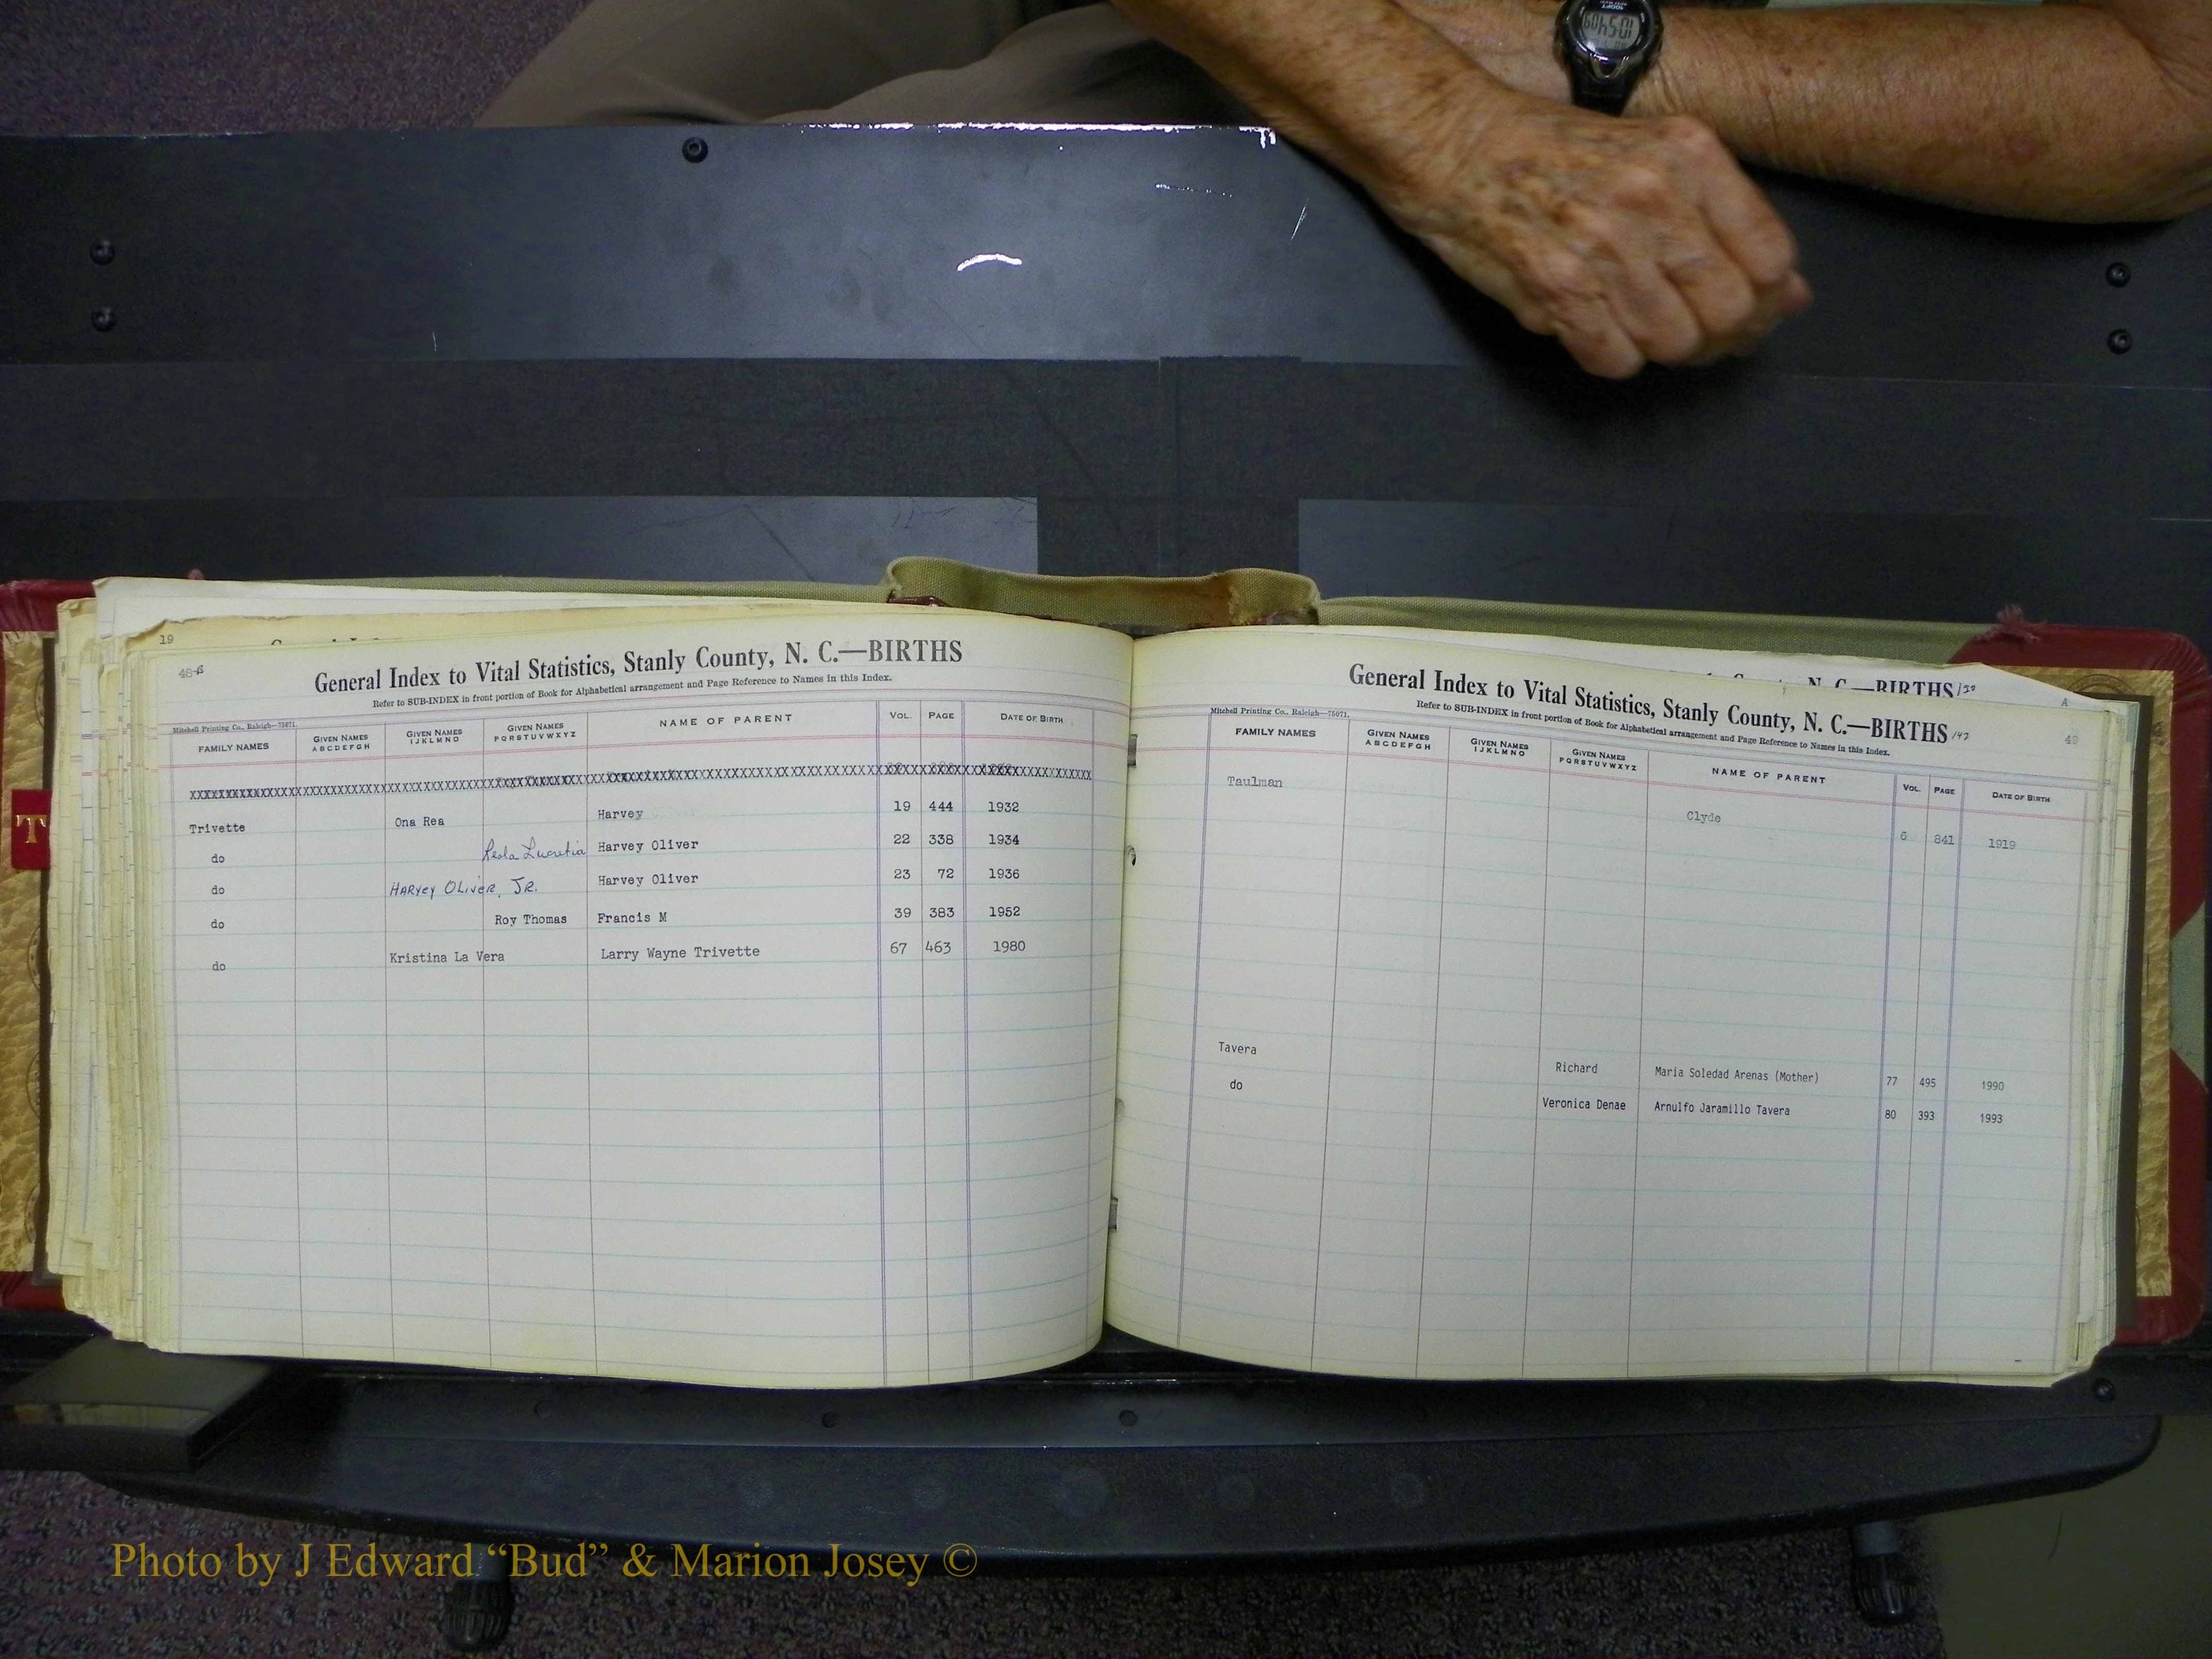 19
48-6
General Index to Vital Statistics, Stanly County, N. C.—BIRTHS
Refer to SUB-INDEX in front portion of Book for Alphabetical arrangement and Page Reference to Names in this Index.
Mitchell Printing Co., Raleigh—75071.
FAMILY NAMES GIVEN NAMES ABCDEFGH GIVEN NAMES IJKLMNO GIVEN NAMES PQRSTUVWXYZ NAME OF PARENT VOL. PAGE DATE OF BIRTH
Trivette Ona Rea Harvey 19 444 1932
do Leola Lucretia Harvey Oliver 22 338 1934
do HARVEY OLIVER, JR. Harvey Oliver 23 72 1936
do Roy Thomas Francis M 39 383 1952
do Kristina La Vera Larry Wayne Trivette 67 463 1980
T
N. C.—BIRTHS 139
General Index to Vital Statistics, Stanly County, N. C.—BIRTHS 142
49
Refer to SUB-INDEX in front portion of Book for Alphabetical arrangement and Page Reference to Names in this Index.
Mitchell Printing Co., Raleigh—75071.
FAMILY NAMES GIVEN NAMES ABCDEFGH GIVEN NAMES IJKLMNO GIVEN NAMES PQRSTUVWXYZ NAME OF PARENT VOL. PAGE DATE OF BIRTH
Taulman Clyde 6 841 1919
Tavera Richard Maria Soledad Arenas (Mother) 77 495 1990
do Veronica Denae Arnulfo Jaramillo Tavera 80 393 1993
Photo by J Edward “Bud” & Marion Josey ©